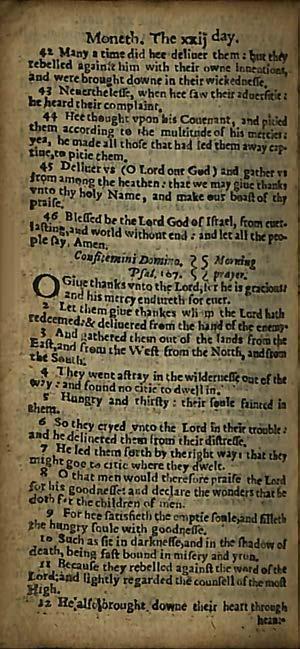 Moneth. The xxij day.
42 Many a time did hee deliuer them: but they
rebelled against him with their owne inuentions,
and were brought downe in their wickednesse.
43 Neuerthelesse, when hee saw their aduersitie:
he heard their complaint.
44 Hee thought vpon his Couenant, and pitied
them according to the multitude of his mercies:
yea, he made all those that had led them away cap-
tiue, to pitie them.
45 Deliuer vs (O Lord our God) and gather vs
from among the heathen: that we may giue thanks
vnto thy holy Name, and make our boast of thy
praise.
46 Blessed be the Lord God of Israel, from euer-
lasting, and world without end: and let all the peo-
ple say, Amen.
Confitemini Domino. Morning
Psal. 107. prayer.
O Giue thanks vnto the Lord, for he is gracious:
and his mercy endureth for euer.
2 Let them giue thankes whom the Lord hath
redeemed: & deliuered from the hand of the enemy.
3 And gathered them out of the lands from the
East, and from the West from the North, and from
the South.
4 They went astray in the wildernesse out of the
way: and found no citie to dwell in.
5 Hungry and thirsty: their soule fainted in
them.
6 So they cryed vnto the Lord in their trouble:
and he deliuered them from their distresse.
7 He led them forth by the right way: that they
might goe to citie where they dwelt.
8 O that men would therefore praise the Lord
for his goodnesse: and declare the wonders that he
doth for the children of men.
9 For hee satisfieth the emptie soule, and filleth
the hungry soule with goodnesse.
10 Such as sit in darknesse, and in the shadow of
death, being fast bound in misery and yron.
11 Because they rebelled against the word of the
Lord: and lightly regarded the counsell of the most
High.
12 He also brought downe their heart through
hea-